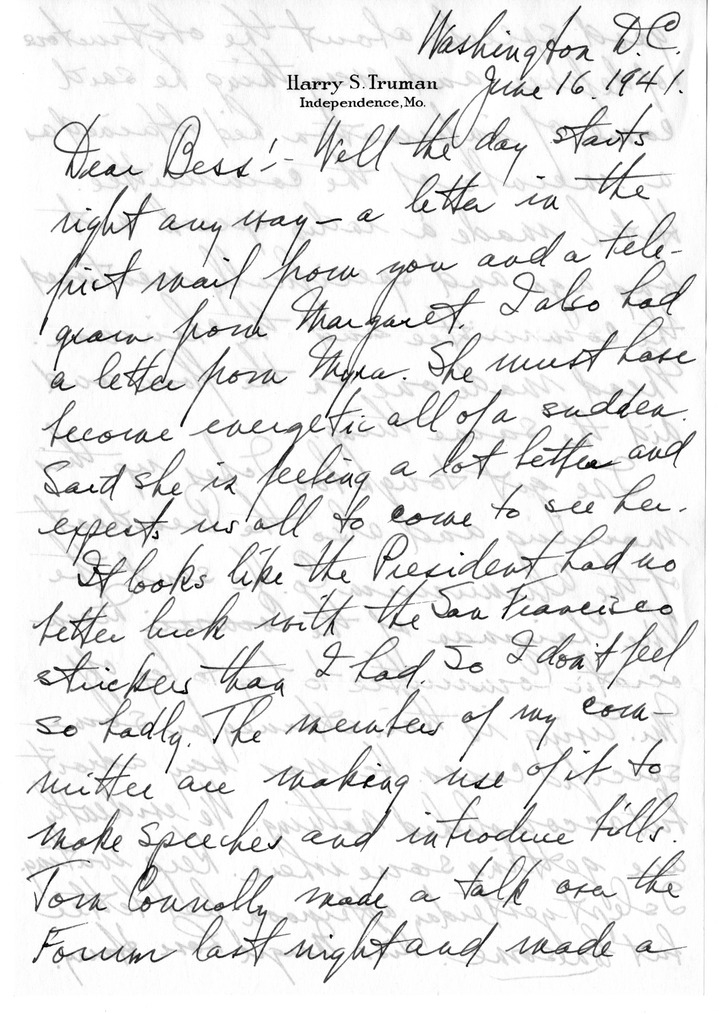 Washington D.C.
Harry S. Truman
Independence, Mo.
June 16, 1941.
Dear Bess:- Well the day starts
right any way - a letter in the
first mail from you and a tele-
gram from Margaret. I also had
a letter from Myra. She must have
become energetic all of a sudden.
Said she is feeling a lot better and
expects us all to come to see her.
It looks like the President had no
better luck with the San Francisco
strikers than I had. So I don't feel
so badly. The members of my com-
mittee are making use of it to
make speeches and introduce bills.
Tom Connally made a talk over the
Forum last night and made a